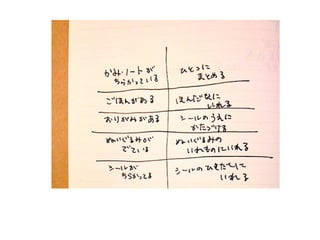 かみ・ノートが
ちらかっている
ひとつに
まとめる
ごほんがある
ほんだなに
いれる
おりがみがある
シールのうえに
かたづける
ぬいぐるみが
でている
ぬいぐるみの
いれものにいれる
シールが
ちらかってる
シールの
いれる